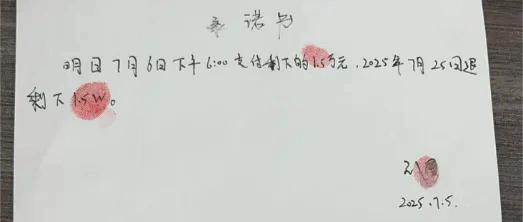 承诺书
明日7月6日下午6:00支付剩下的1.5万元，2025年7月25日退
剩下1.5W。
2025.7.5.